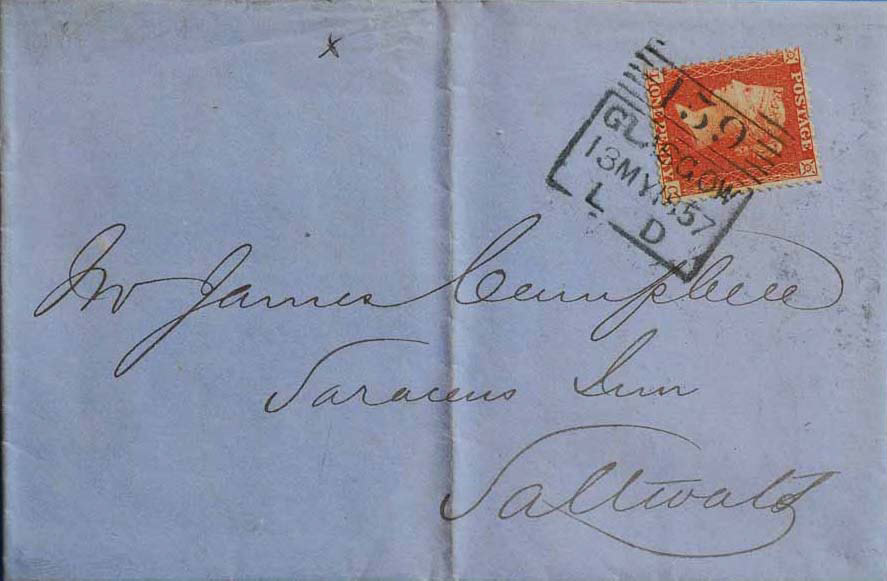 x
POSTAGE
ONE PENNY
159
GLASGOW
13 MY 1857
L D
Mr James Campbell
Saracens Inn
Saltwats